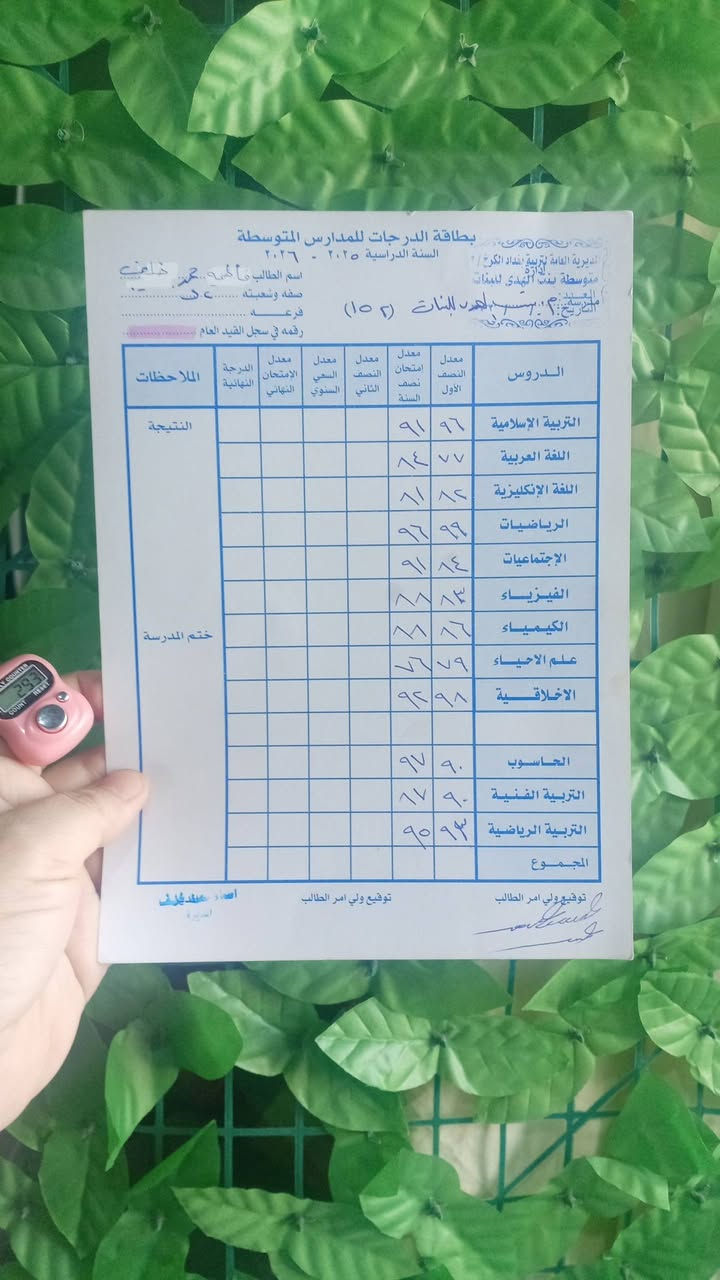 بطاقة الدرجات للمدارس المتوسطة
السنة الدراسية ٢٠٢٥ - ٢٠٢٦
المديرية العامة لتربية بغداد الكرخ / ٢
إدارة
متوسطة بنت الهدى للبنات
العدد:
التاريخ:
اسم الطالب فاطمة محمد خلف
صفه وشعبته
مدرسة: للبنات (١٥٢)
فرعه
رقمه في سجل القيد العام
الدروس معدل النصف الأول معدل إمتحان نصف السنة معدل النصف الثاني معدل السعي السنوي معدل الإمتحان النهائي الدرجة النهائية الملاحظات
التربية الإسلامية ٩٦ ٩١ النتيجة
اللغة العربية ٧٧ ٨٤
اللغة الإنكليزية ٨٢ ٨١
الرياضيات ٩٩ ٩٦
الإجتماعيات ٨٤ ٩١
الفيزياء ٨٣ ٨٨
الكيمياء ٨٦ ٨٨ ختم المدرسة
علم الاحياء ٧٩ ٧٦
الاخلاقية ٩٨ ٩٢
الحاسوب ٩٠ ٩٧
التربية الفنية ٩٠ ٨٧
التربية الرياضية ٩٣ ٩٥
المجموع
توقيع ولي امر الطالب توقيع ولي امر الطالب
المديرة
293
COUNT RESET